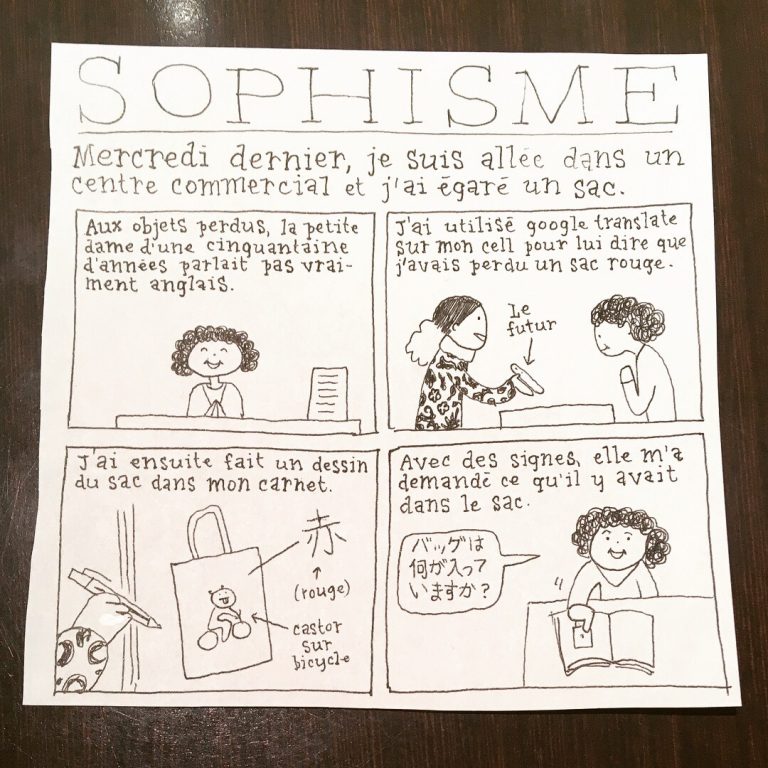 SOPHISME
Mercredi dernier, je suis allée dans un
centre commercial et j'ai égaré un sac.
Aux objets perdus, la petite
dame d'une cinquantaine
d'années parlait pas vrai-
ment anglais.
J'ai utilisé google translate
sur mon cell pour lui dire que
j'avais perdu un sac rouge.
Le
futur
J'ai ensuite fait un dessin
du sac dans mon carnet.
赤
(rouge)
castor
sur
bicycle
Avec des signes, elle m'a
demandé ce qu'il y avait
dans le sac.
バッグは
何が入って
いますか?